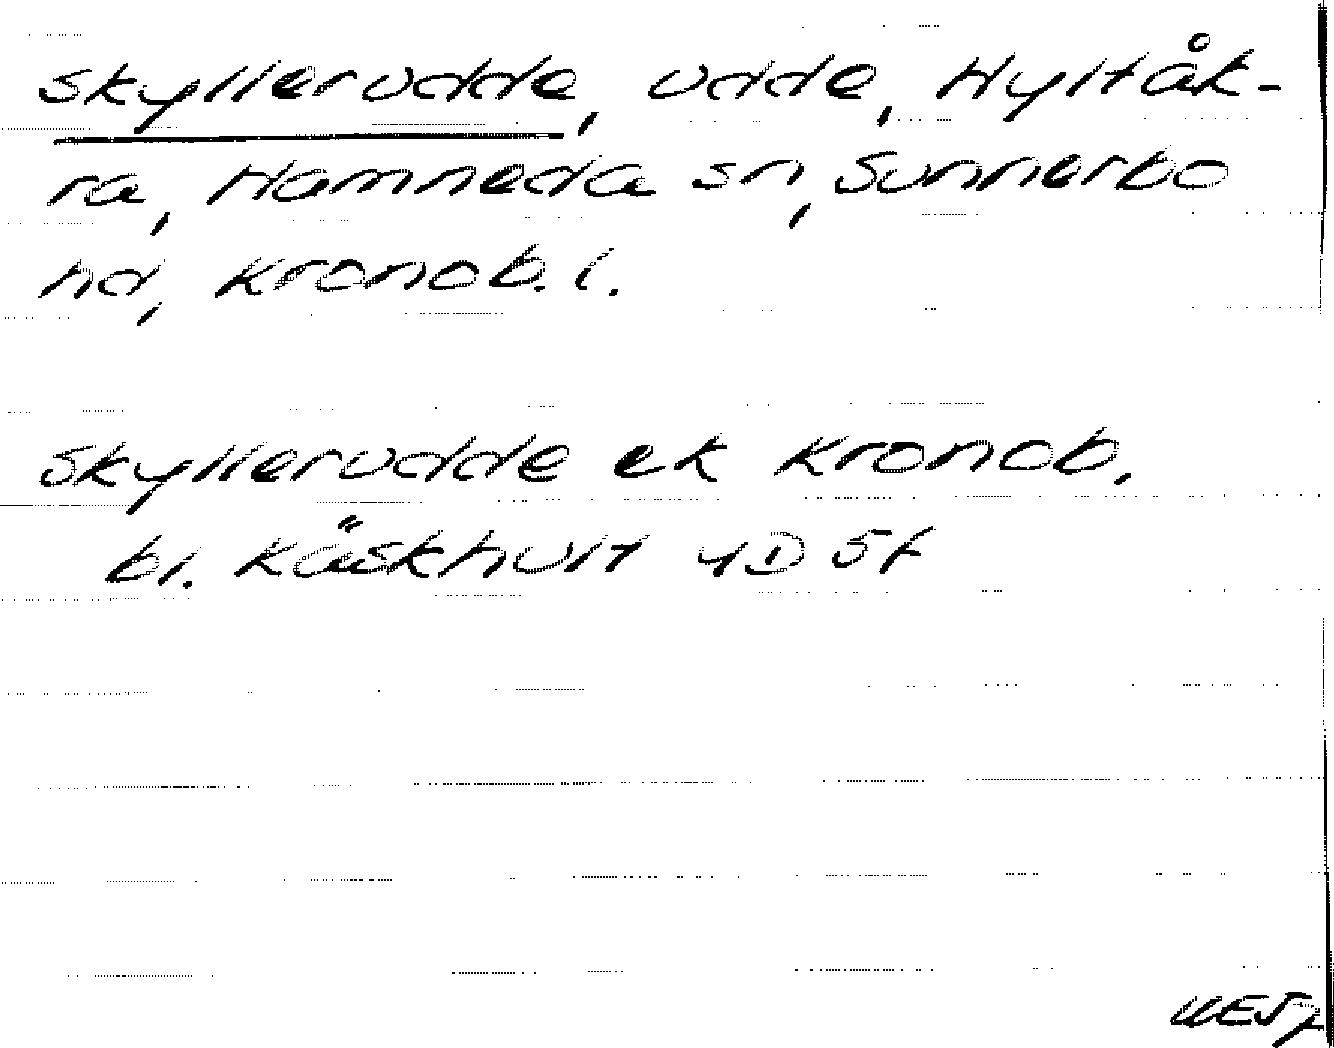 Skyllerudde, udde, Hyltåk-
ra, Hamneda sn, Sunnerbo
hd, Kronob. l.
Skyllerudde ek Kronob.
bl. Käskhult 4D 5f